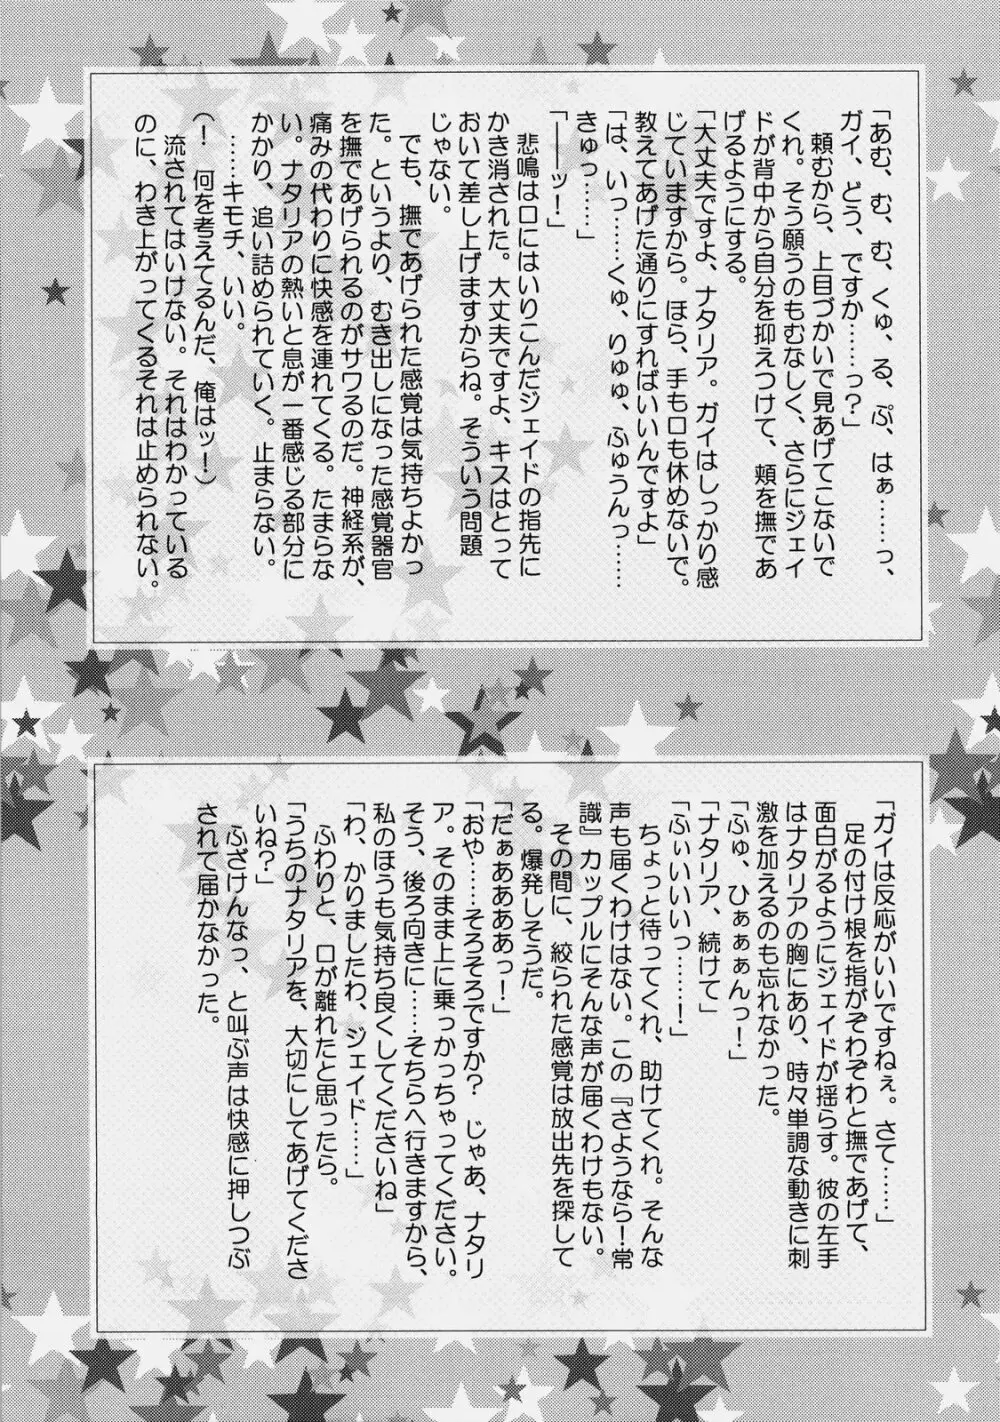 「あむ、む、む、くゅ、る、ぷ、はぁ……っ、
ガイ、どう、ですか……っ？」
頼むから、上目づかいで見あげてこないで
くれ。そう願うのもむなしく、さらにジェイ
ドが背中から自分を抑えつけて、頬を撫であ
げるようにする。
「大丈夫ですよ、ナタリア。ガイはしっかり感
じていますから。ほら、手も口も休めないで。
教えてあげた通りにすればいいんですよ」
「は、いっ……くゅ、りゅゅ、ふゅうんっ……
きゅっ……」
「――ッ！」
悲鳴は口にはいりこんだジェイドの指先に
かき消された。大丈夫ですよ、キスはとって
おいて差し上げますからね。そういう問題
じゃない。
でも、撫であげられた感覚は気持ちよかっ
た。というより、むき出しになった感覚器官
を撫であげられるのがサワるのだ。神経系が、
痛みの代わりに快感を連れてくる。たまらな
い。ナタリアの熱いと息が一番感じる部分に
かかり、追い詰められていく。止まらない。
……キモチ、いい。
（！　何を考えてるんだ、俺はッ！）
流されてはいけない。それはわかっている
のに、わき上がってくるそれは止められない。
「ガイは反応がいいですねぇ。さて……」
足の付け根を指がぞわぞわと撫であげて、
面白がるようにジェイドが揺らす。彼の左手
はナタリアの胸にあり、時々単調な動きに刺
激を加えるのも忘れなかった。
「ふゅ、ひぁぁぁんっ！」
「ナタリア、続けて」
「ふぃいいいっ……！」
ちょっと待ってくれ、助けてくれ。そんな
声も届くわけはない。この『さようなら！常
識』カップルにそんな声が届くわけもない。
その間に、絞られた感覚は放出先を探して
る。爆発しそうだ。
「だぁああああっ！」
「おや……そろそろですか？　じゃあ、ナタリ
ア。そのまま上に乗っかっちゃってください。
そう、後ろ向きに……そちらへ行きますから、
私のほうも気持ち良くしてくださいね」
「わ、かりましたわ、ジェイド……」
ふわりと、口が離れたと思ったら。
「うちのナタリアを、大切にしてあげてくださ
いね？」
ふざけんなっ、と叫ぶ声は快感に押しつぶ
されて届かなかった。